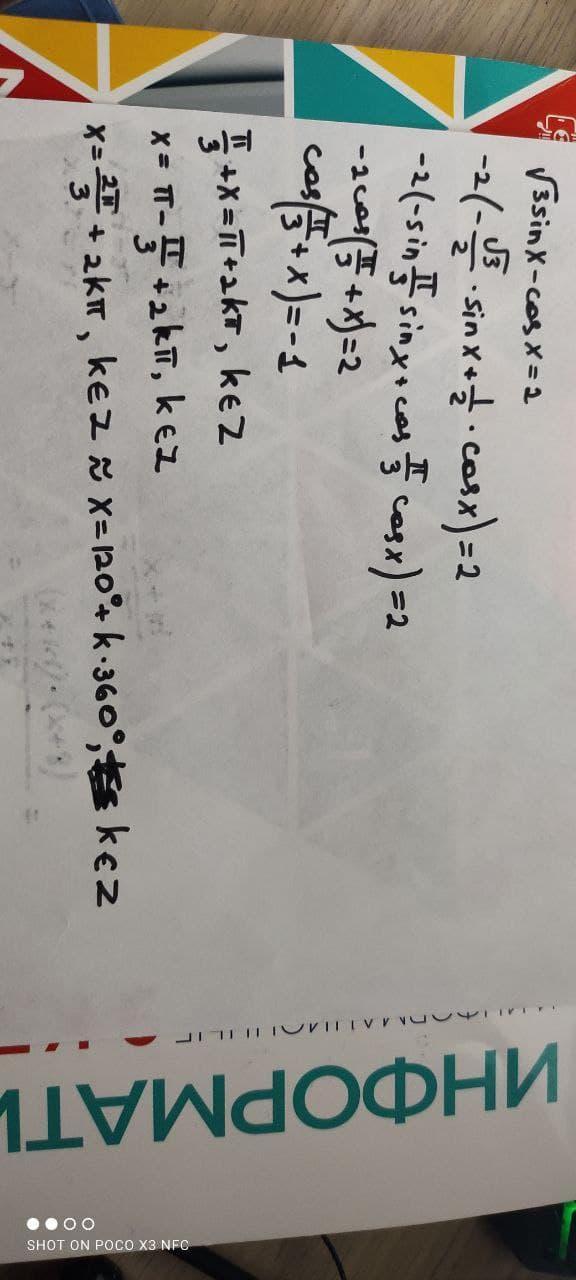 √3 sinx - cosx = 2
-2(-√3/2 · sinx + 1/2 · cosx) = 2
-2(-sin π/3 sinx + cos π/3 cosx) = 2
-2cos(π/3 + x) = 2
cos(π/3 + x) = -1
π/3 + x = π + 2kπ, k∈Z
x = π - π/3 + 2kπ, k∈Z
x = 2π/3 + 2kπ, k∈Z ≈ x = 120° + k·360°, k∈Z
ИНФОРМАТИ
SHOT ON POCO X3 NFC